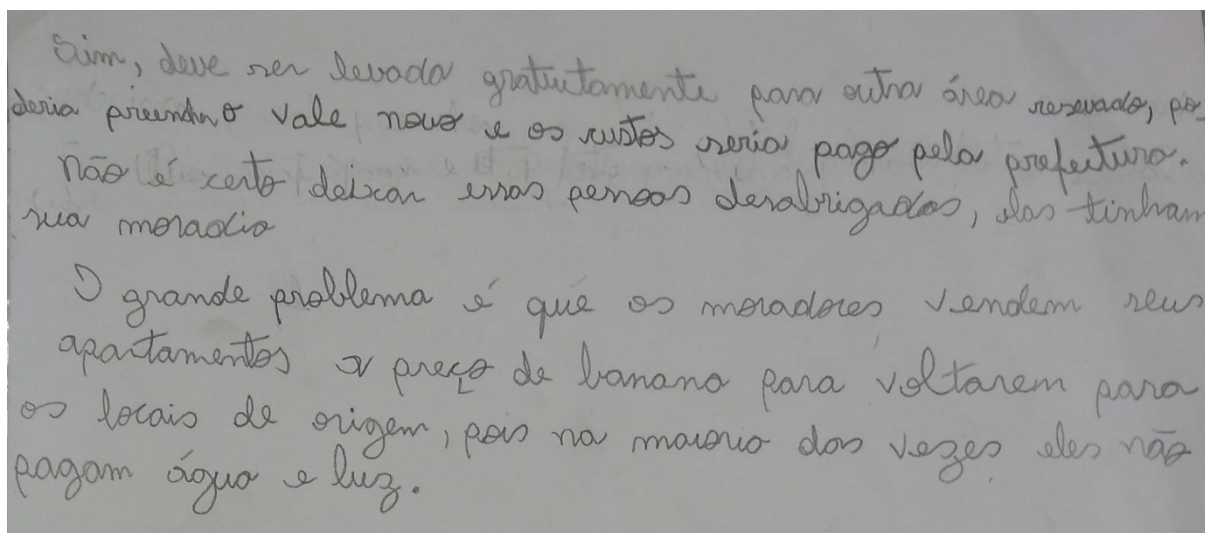 Sim, deve ser levada gratuitamente para outra área reservado, po-
deria preencher o vale novo e os custos seria pago pela prefeitura.
Não é certo deixar essas pessoas desabrigados, elas tinham
sua moradia
O grande problema é que os moradores vendem seus
apartamentos a preço de banana para voltarem para
os locais de origem, pois na maioria das vezes eles não
pagam água e luz.